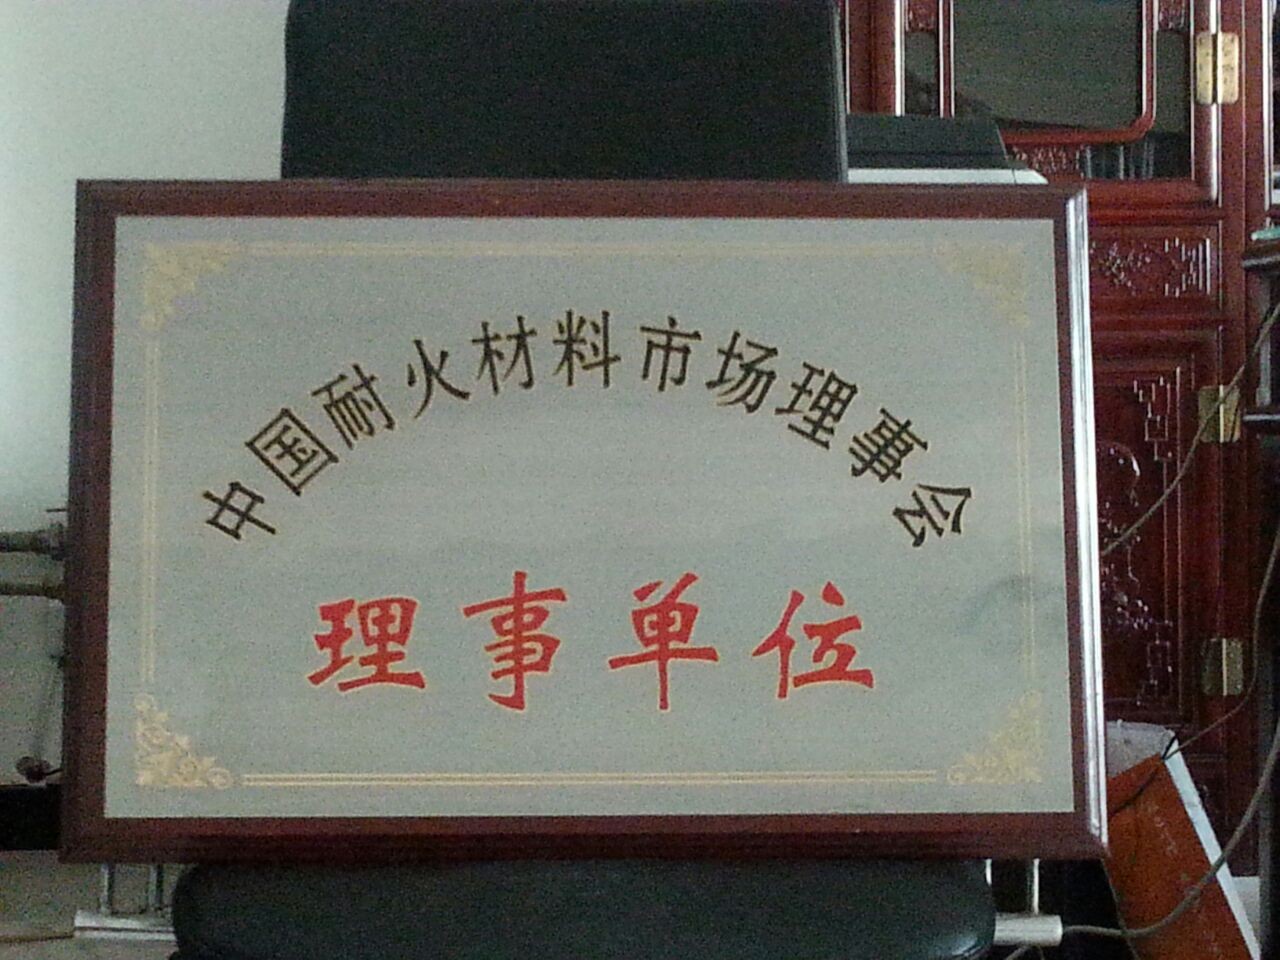 中国耐火材料市场理事会
理事单位